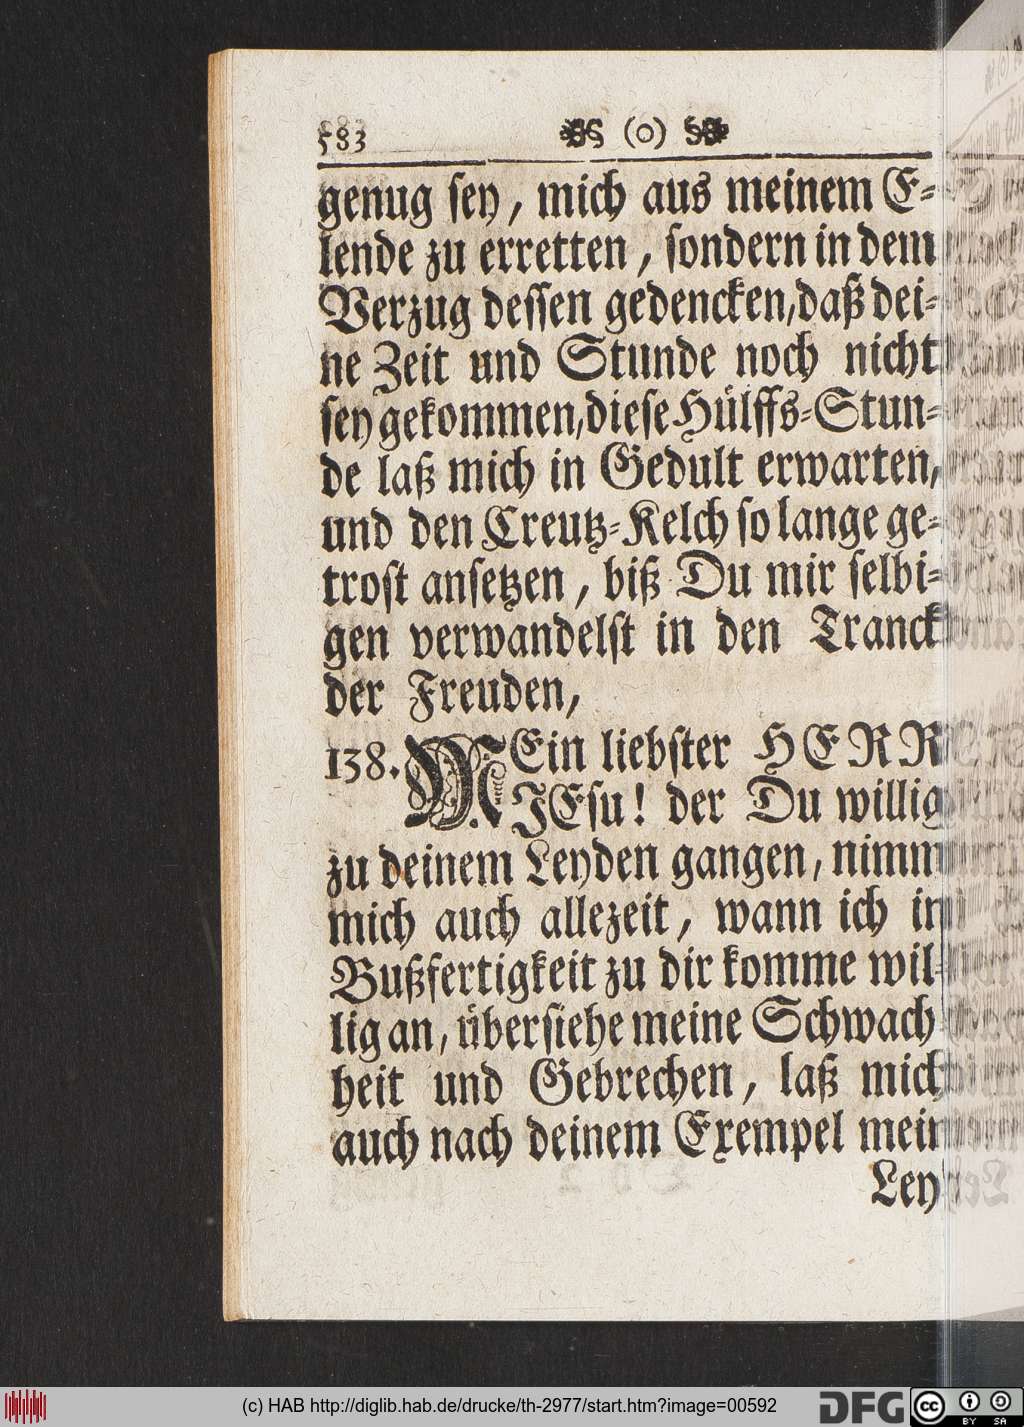 583 (o)
genug sey, mich aus meinem E-
lende zu erretten, sondern in dem
Verzug dessen gedencken, daß dei-
ne Zeit und Stunde noch nicht
sey gekommen, diese Hülffs-Stun-
de laß mich in Gedult erwarten,
und den Creutz-Kelch so lange ge-
trost ansetzen, biß Du mir selbi-
gen verwandelst in den Tranck
der Freuden,
138. MEin liebster HERR
JEsu! der Du willig
zu deinem Leyden gangen, nimm
mich auch allezeit, wann ich in
Bußfertigkeit zu dir komme wil-
lig an, übersiehe meine Schwach
heit und Gebrechen, laß mich
auch nach deinem Exempel mein
Ley
(c) HAB http://diglib.hab.de/drucke/th-2977/start.htm?image=00592
DFG
cc BY SA